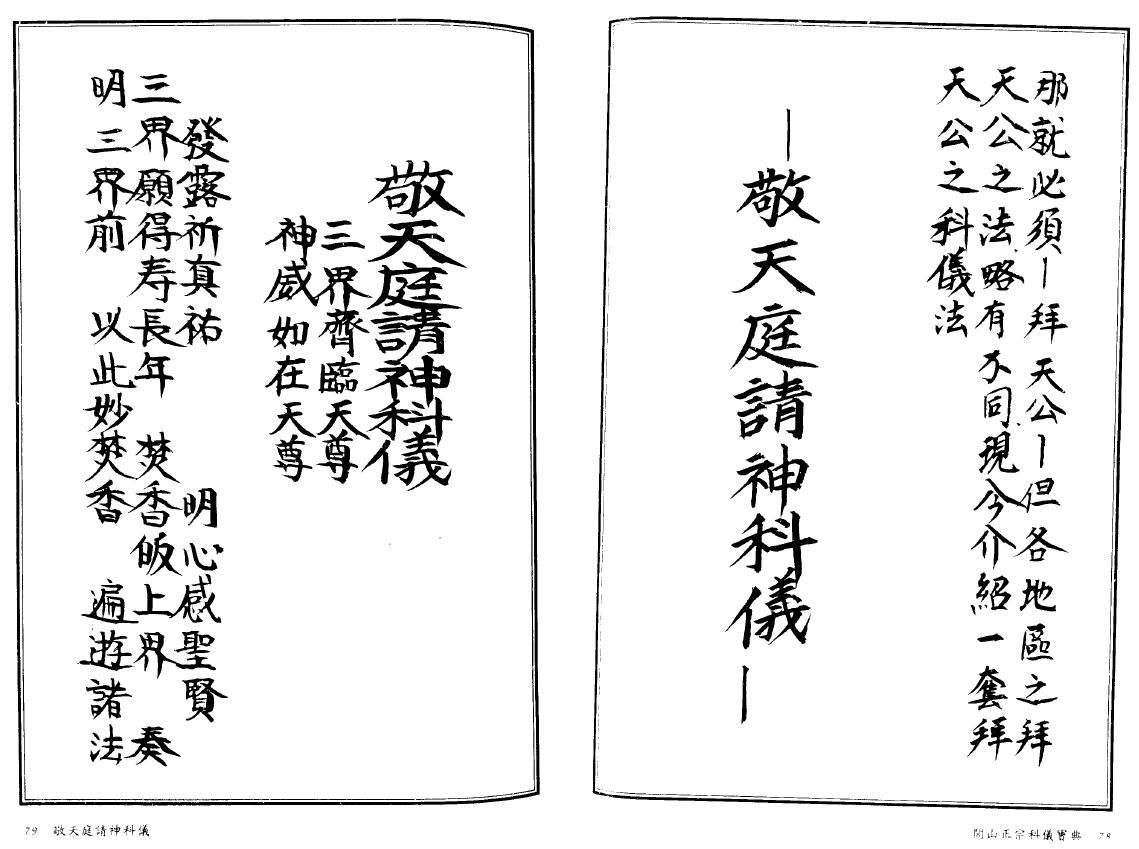 那就必須—拜天公—但各地區之拜
天公之法略有不同現今介紹一套拜
天公之科儀法
—敬天庭請神科儀—
閭山正宗科儀寶典 78
敬天庭請神科儀
三界齊臨天尊
神威如在天尊
發露祈真祐 明心感聖賢
三界願得寿長年 焚香皈上界 奏
明 三界前 以此妙焚香 遍遊諸法
79 敬天庭請神科儀